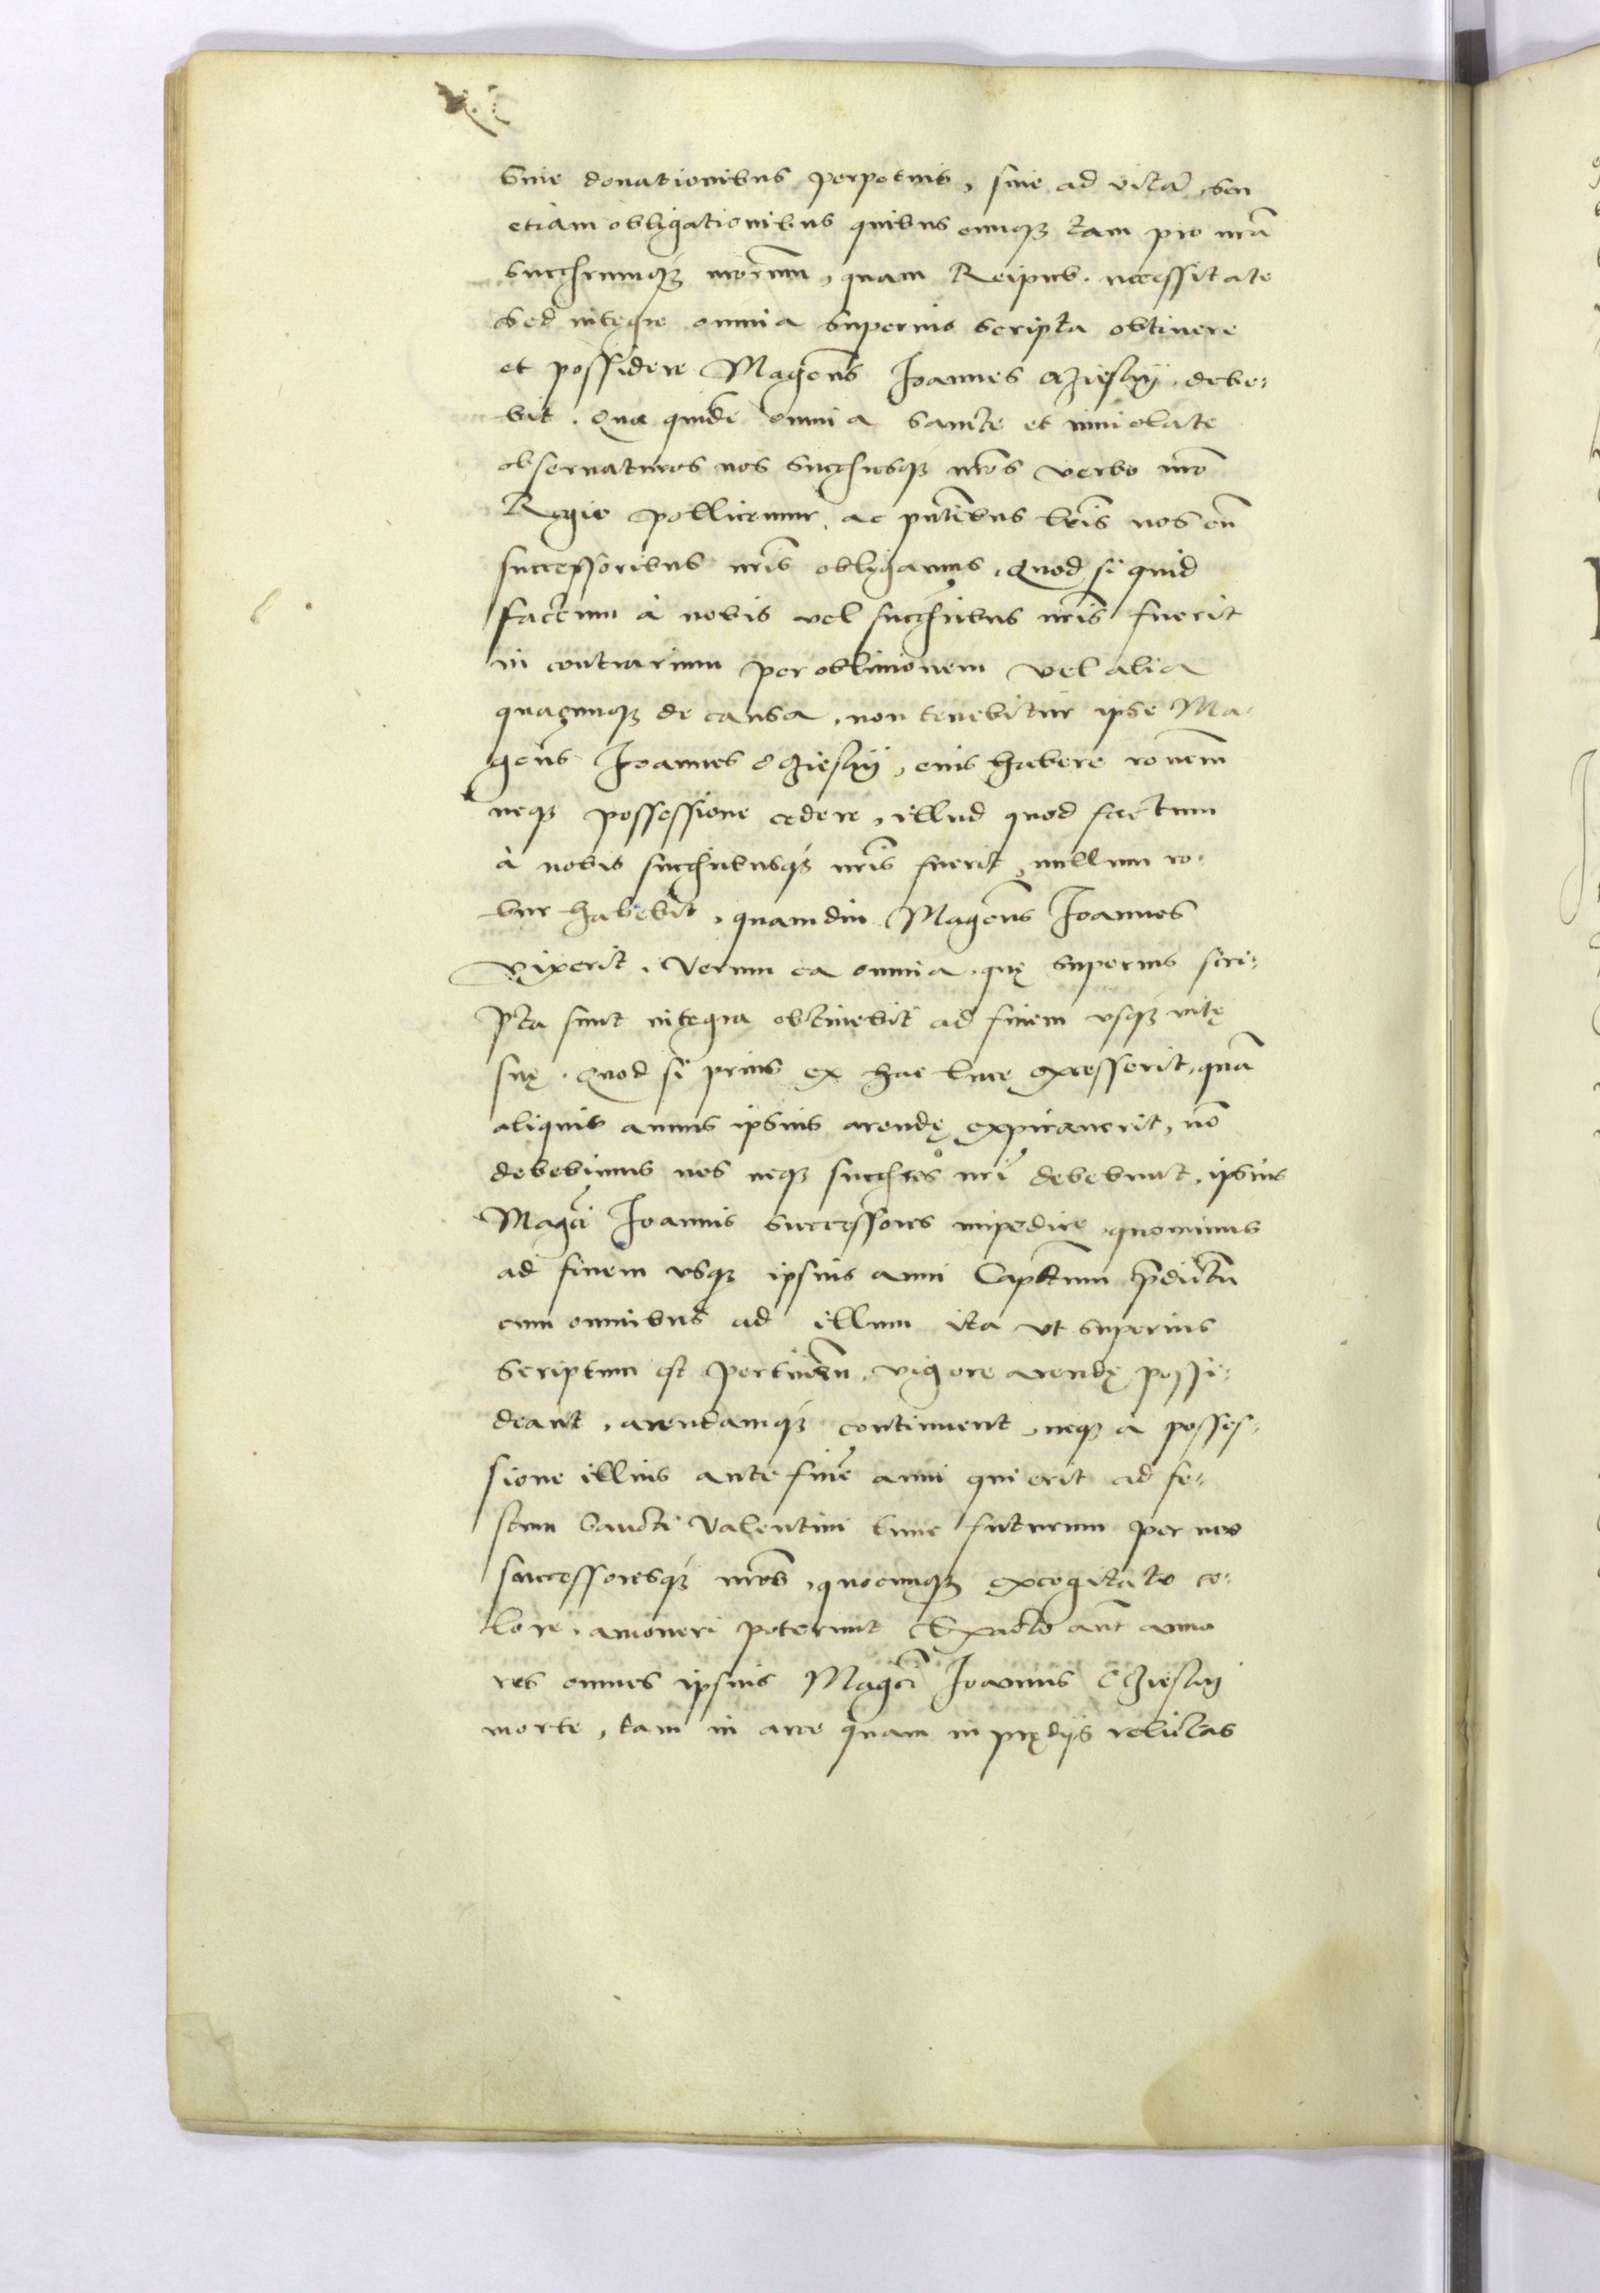 siue donationibus perpetuis, siue ad vitã, seu
etiam obligationibus quibuscunq3 tam pro nr̃a
succhrumq3 nr̃orum, quam Reipub. necessitate
Sed integre omnia superius scripta obtinere
et possidere Magcus Joannes debe-
bit. Quae quidẽ omnia sancte et inuiolate
obseruaturos nos succhresq3 nr̃os verbo nr̃o
Regio pollicemur, ac pñtibus lr̃is nos cũ
successoribus nr̃is obligamus. Quod si quid
factum à nobis vel succhribus nr̃is fuerit
in contrarium per obliuionem vel alia
quacunq3 de causa, non tenebitur ipse Ma-
gcus Joannes, eius habere ronem
neq3 possessione cedere, illud quod factum
à nobis succhribusq3 nr̃is fuerit, nullum ro-
bur habebit, quamdiu Magcus Joannes
vixerit. Verum ea omnia quę superius scri-
pta sunt integra obtinebit ad finem vsq3 vitę
suę. Quod si prius ex hac luce excesserit, quã
aliquis annus ipsius arendę expirauerit, nõ
debebimus nos neq3 succhres nr̃i debebunt, ipsius
Magci Joannis successores impedire quominus
ad finem vsq3 ipsius anni Captum p̃dictũ
cum omnibus ad illum ita vt superius
scriptum est pertineñ, vigore arendę possi-
deant, arendamq3 continuent, neq3 à posses-
sione illius ante finẽ anni qui erit ad fe-
stum Sancti Valentini tunc futurum per nos
successoresq3 nr̃os, quocunq3 excogitato co-
lore, amoueri poterunt Exacto aut̃ anno
res omnes ipsius Magci Joannis
morte, tam in arce quam in prędijs relictas